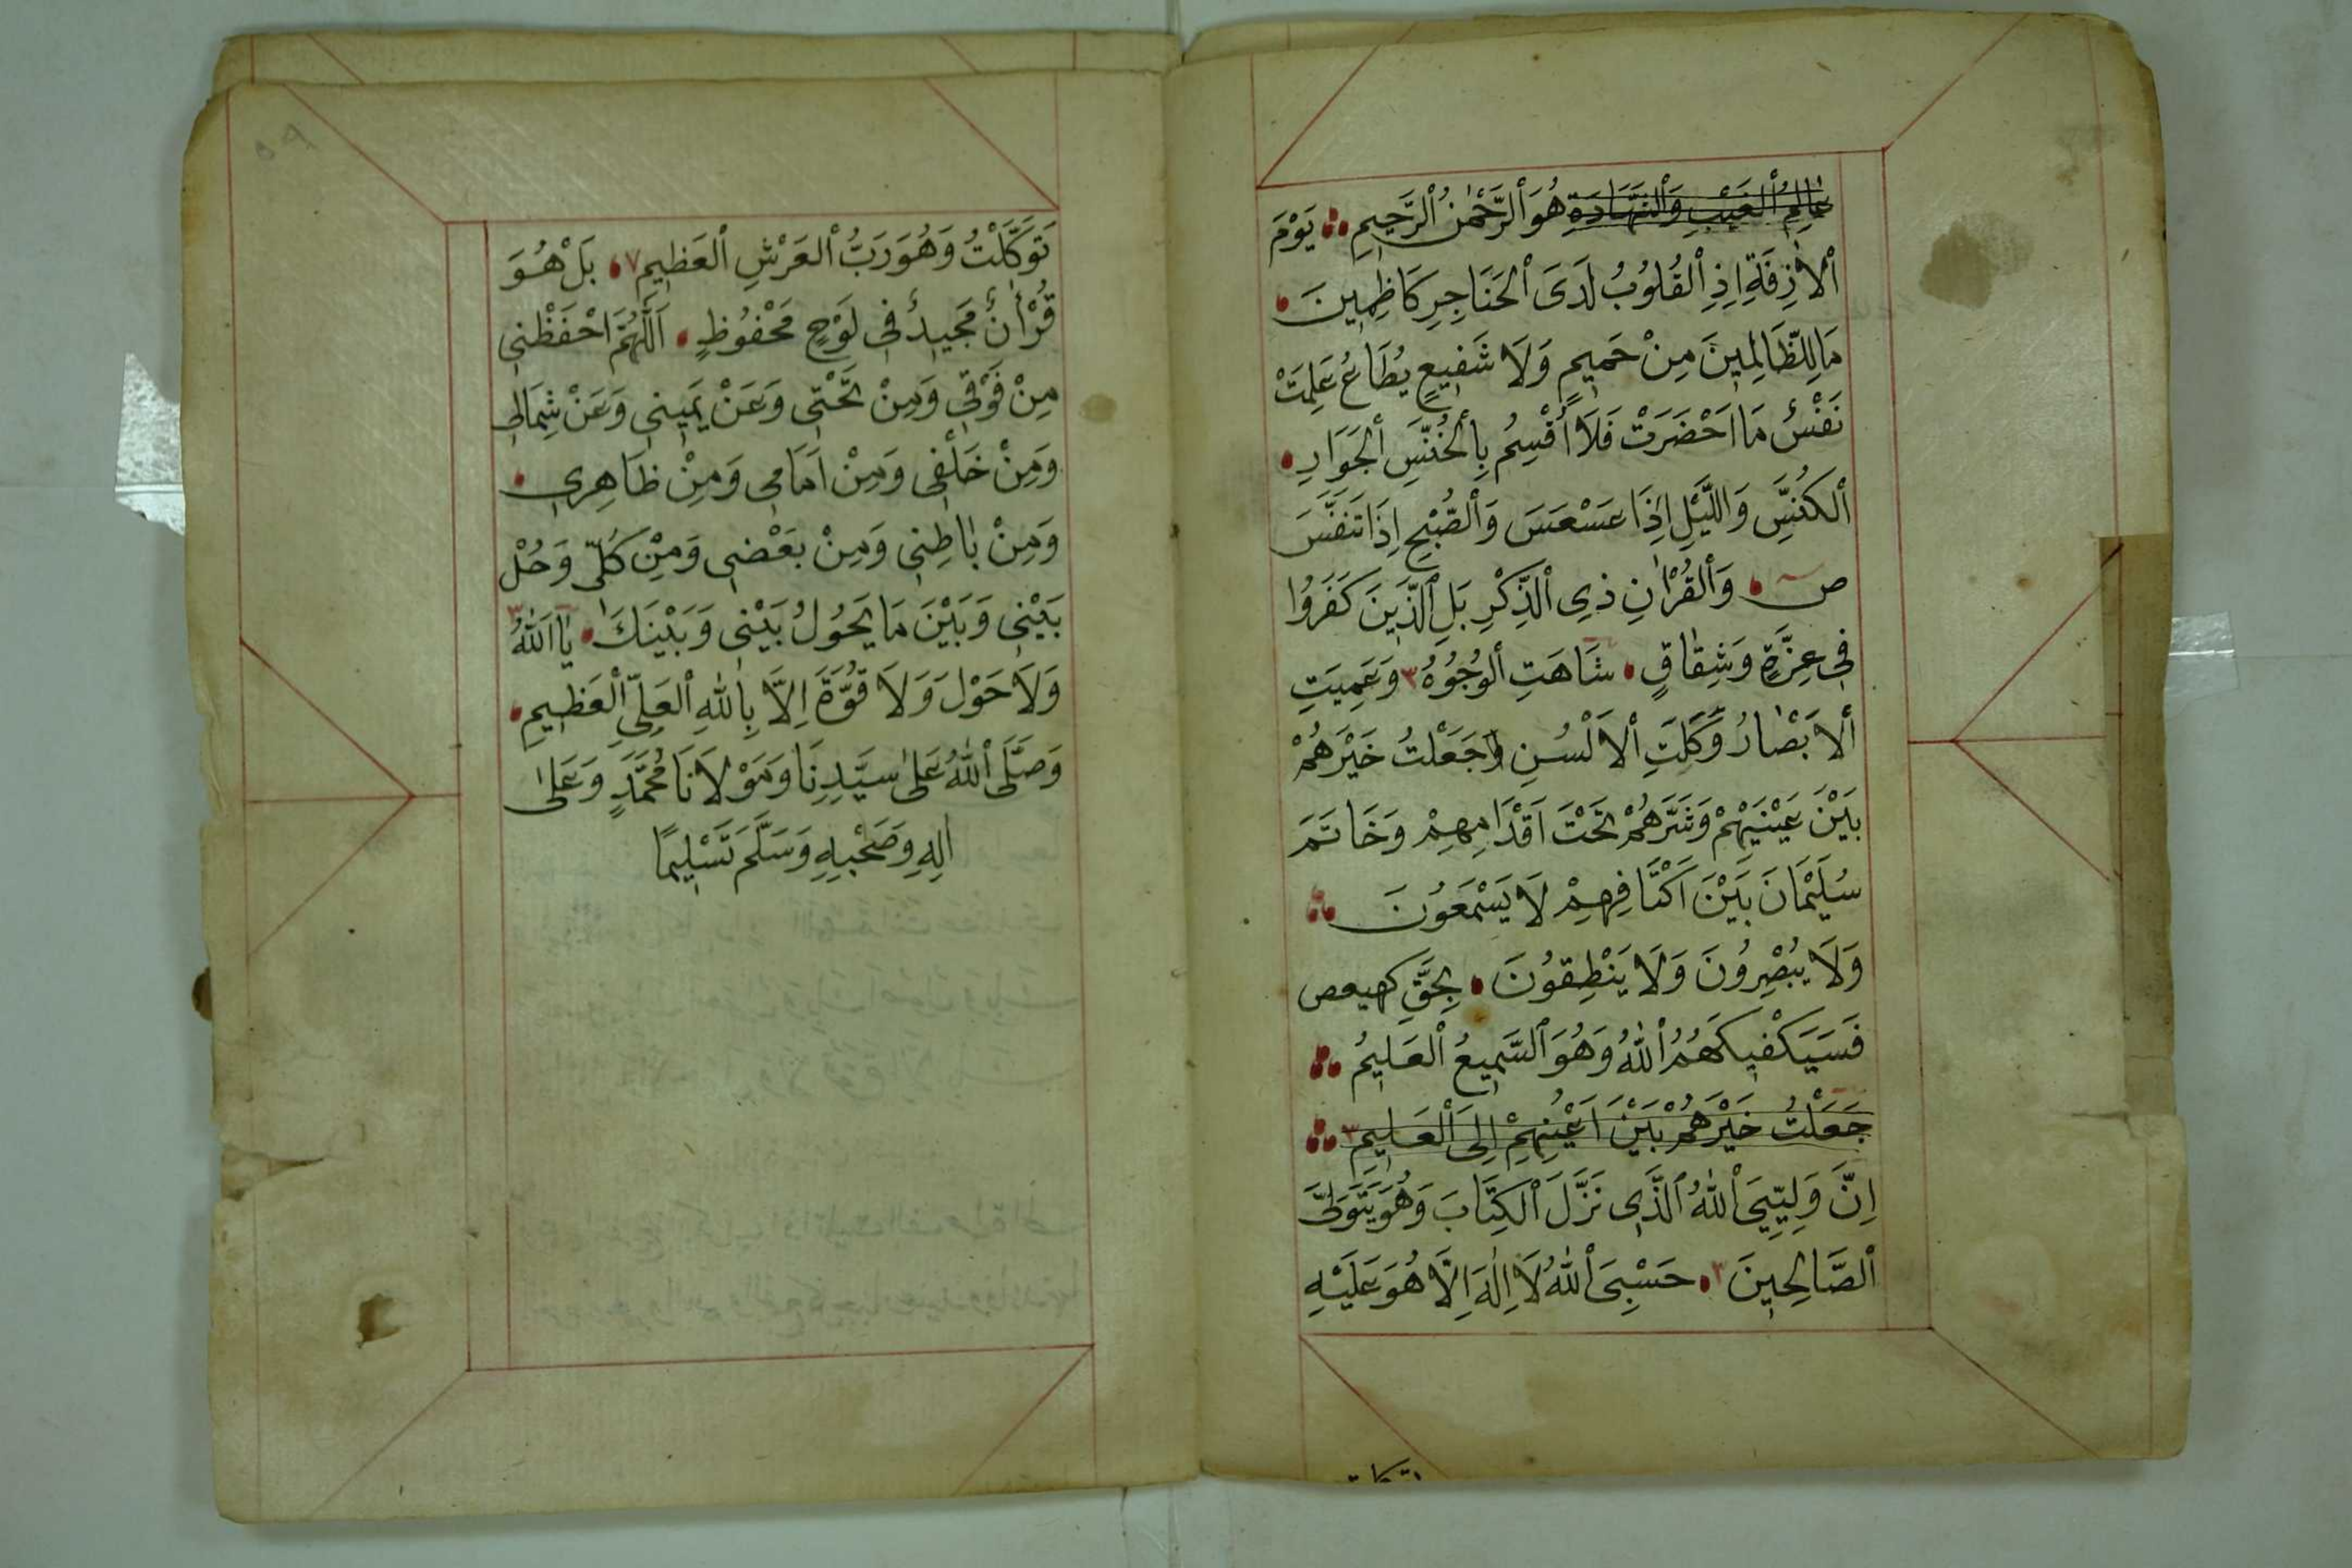 عَالِمُ ٱلْغَيْبِ وَٱلشَّهَادَةِ هُوَ ٱلرَّحْمٰنُ ٱلرَّحِيمِ يَوْمَ
ٱلْاٰزِفَةِ اِذِ ٱلْقُلُوبُ لَدَى ٱلْحَنَاجِرِ كَاظِمِينَ
مَا لِلظَّالِمِينَ مِنْ حَمِيمٍ وَلَا شَفِيعٍ يُطَاعُ عَلِمَتْ
نَفْسٌ مَا اَحْضَرَتْ فَلَا أُقْسِمُ بِٱلْخُنَّسِ ٱلْجَوَارِ
ٱلْكُنَّسِ وَاللَّيْلِ اِذَا عَسْعَسَ وَٱلصُّبْحِ اِذَا تَنَفَّسَ
ص وَٱلْقُرْاٰنِ ذِي ٱلذِّكْرِ بَلِ ٱلَّذِينَ كَفَرُوا
فِي عِزَّةٍ وَشِقَاقٍ شَاهَتِ ٱلْوُجُوُهُ ٣ وَعَمِيَتِ
ٱلْاَبْصَارُ وَكَلَّتِ ٱلْاَلْسُنِ وَاجَعَلْتُ خَيْرَهُمْ
بَيْنَ عَيْنَيْهِمْ وَشَرَّهُمْ تَحْتَ اَقْدَامِهِمْ وَخَاتَمَ
سُلَيْمَانَ بَيْنَ اَكْتَافِهِمْ لَا يَسْمَعُونَ
وَلَا يُبْصِرُونَ وَلَا يَنْطِقُونَ بِحَقِّ كهيعص
فَسَيَكْفِيكَهُمُ ٱللّٰهُ وَهُوَ ٱلسَّمِيعُ ٱلْعَلِيمُ
جَعَلْتُ خَيْرَهُمْ بَيْنَ اَعْيُنِهِمْ اِلَى ٱلْعَلِيمِ ٣
اِنَّ وَلِيِّيَ ٱللّٰهُ ٱلَّذِي نَزَّلَ ٱلْكِتَابَ وَهُوَ يَتَوَلَّى
ٱلصَّالِحِينَ ٣ حَسْبِيَ ٱللّٰهُ لَا اِلٰهَ اِلَّا هُوَ عَلَيْهِ
تَوَكَّلْتُ وَهُوَ رَبُّ ٱلْعَرْشِ ٱلْعَظِيمِ ٧ بَلْ هُوَ
قُرْأٰنٌ مَجِيدٌ فِي لَوْحٍ مَحْفُوظٍ اَللّٰهُمَّ احْفَظْنِي
مِنْ فَوْقِي وَمِنْ تَحْتِي وَعَنْ يَمِينِي وَعَنْ شِمَالِي
وَمِنْ خَلْفِي وَمِنْ اَمَامِي وَمِنْ ظَاهِرِي
وَمِنْ بَاطِنِي وَمِنْ بَعْضِي وَمِنْ كُلِّي وَحُلْ
بَيْنِي وَبَيْنَ مَا يَحُولُ بَيْنِي وَبَيْنَكَ يَا اَللّٰهُ ٣
وَلَا حَوْلَ وَلَا قُوَّةَ اِلَّا بِاللّٰهِ ٱلْعَلِيِّ ٱلْعَظِيمِ
وَصَلَّى ٱللّٰهُ عَلٰى سَيِّدِنَا وَمَوْلَانَا مُحَمَّدٍ وَعَلٰى
اٰلِهِ وَصَحْبِهِ وَسَلَّمَ تَسْلِيمًا